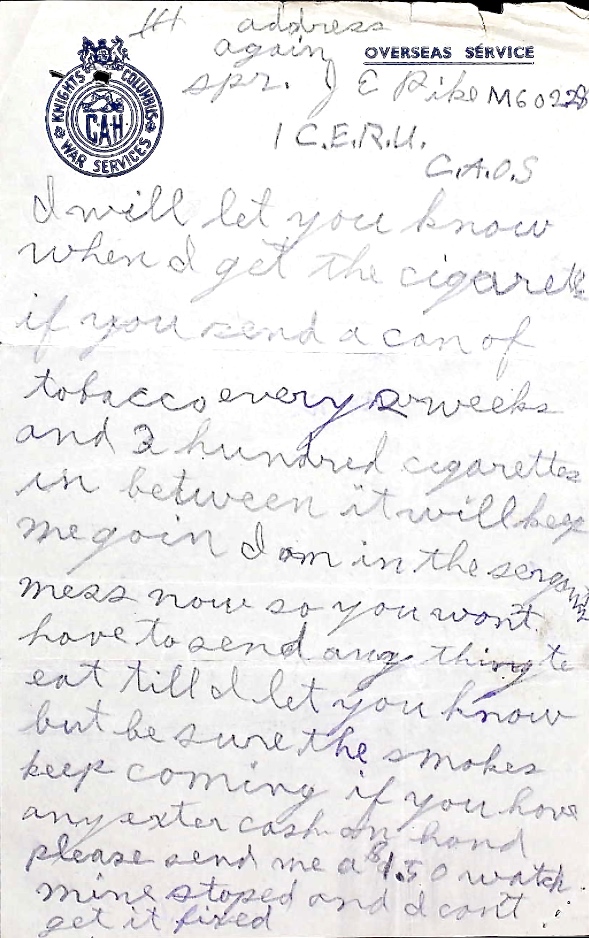 address
again
OVERSEAS SERVICE
KNIGHTS OF COLUMBUS
WAR SERVICES
CAH
spr. J E Pike M60228
1 C.E.R.U.
C.A.O.S
I will let you know
when I get the cigarette
if you send a can of
tobacco every 2 weeks
and 3 hundred cigarettes
in between it will keep
me goin I am in the
mess now so you wont
have to send any thing to
eat till I let you know
but be sure the smokes
keep coming if you have
any exter cash on hand
please send me a $1.50 watch
mine stoped and I cant
get it fixed